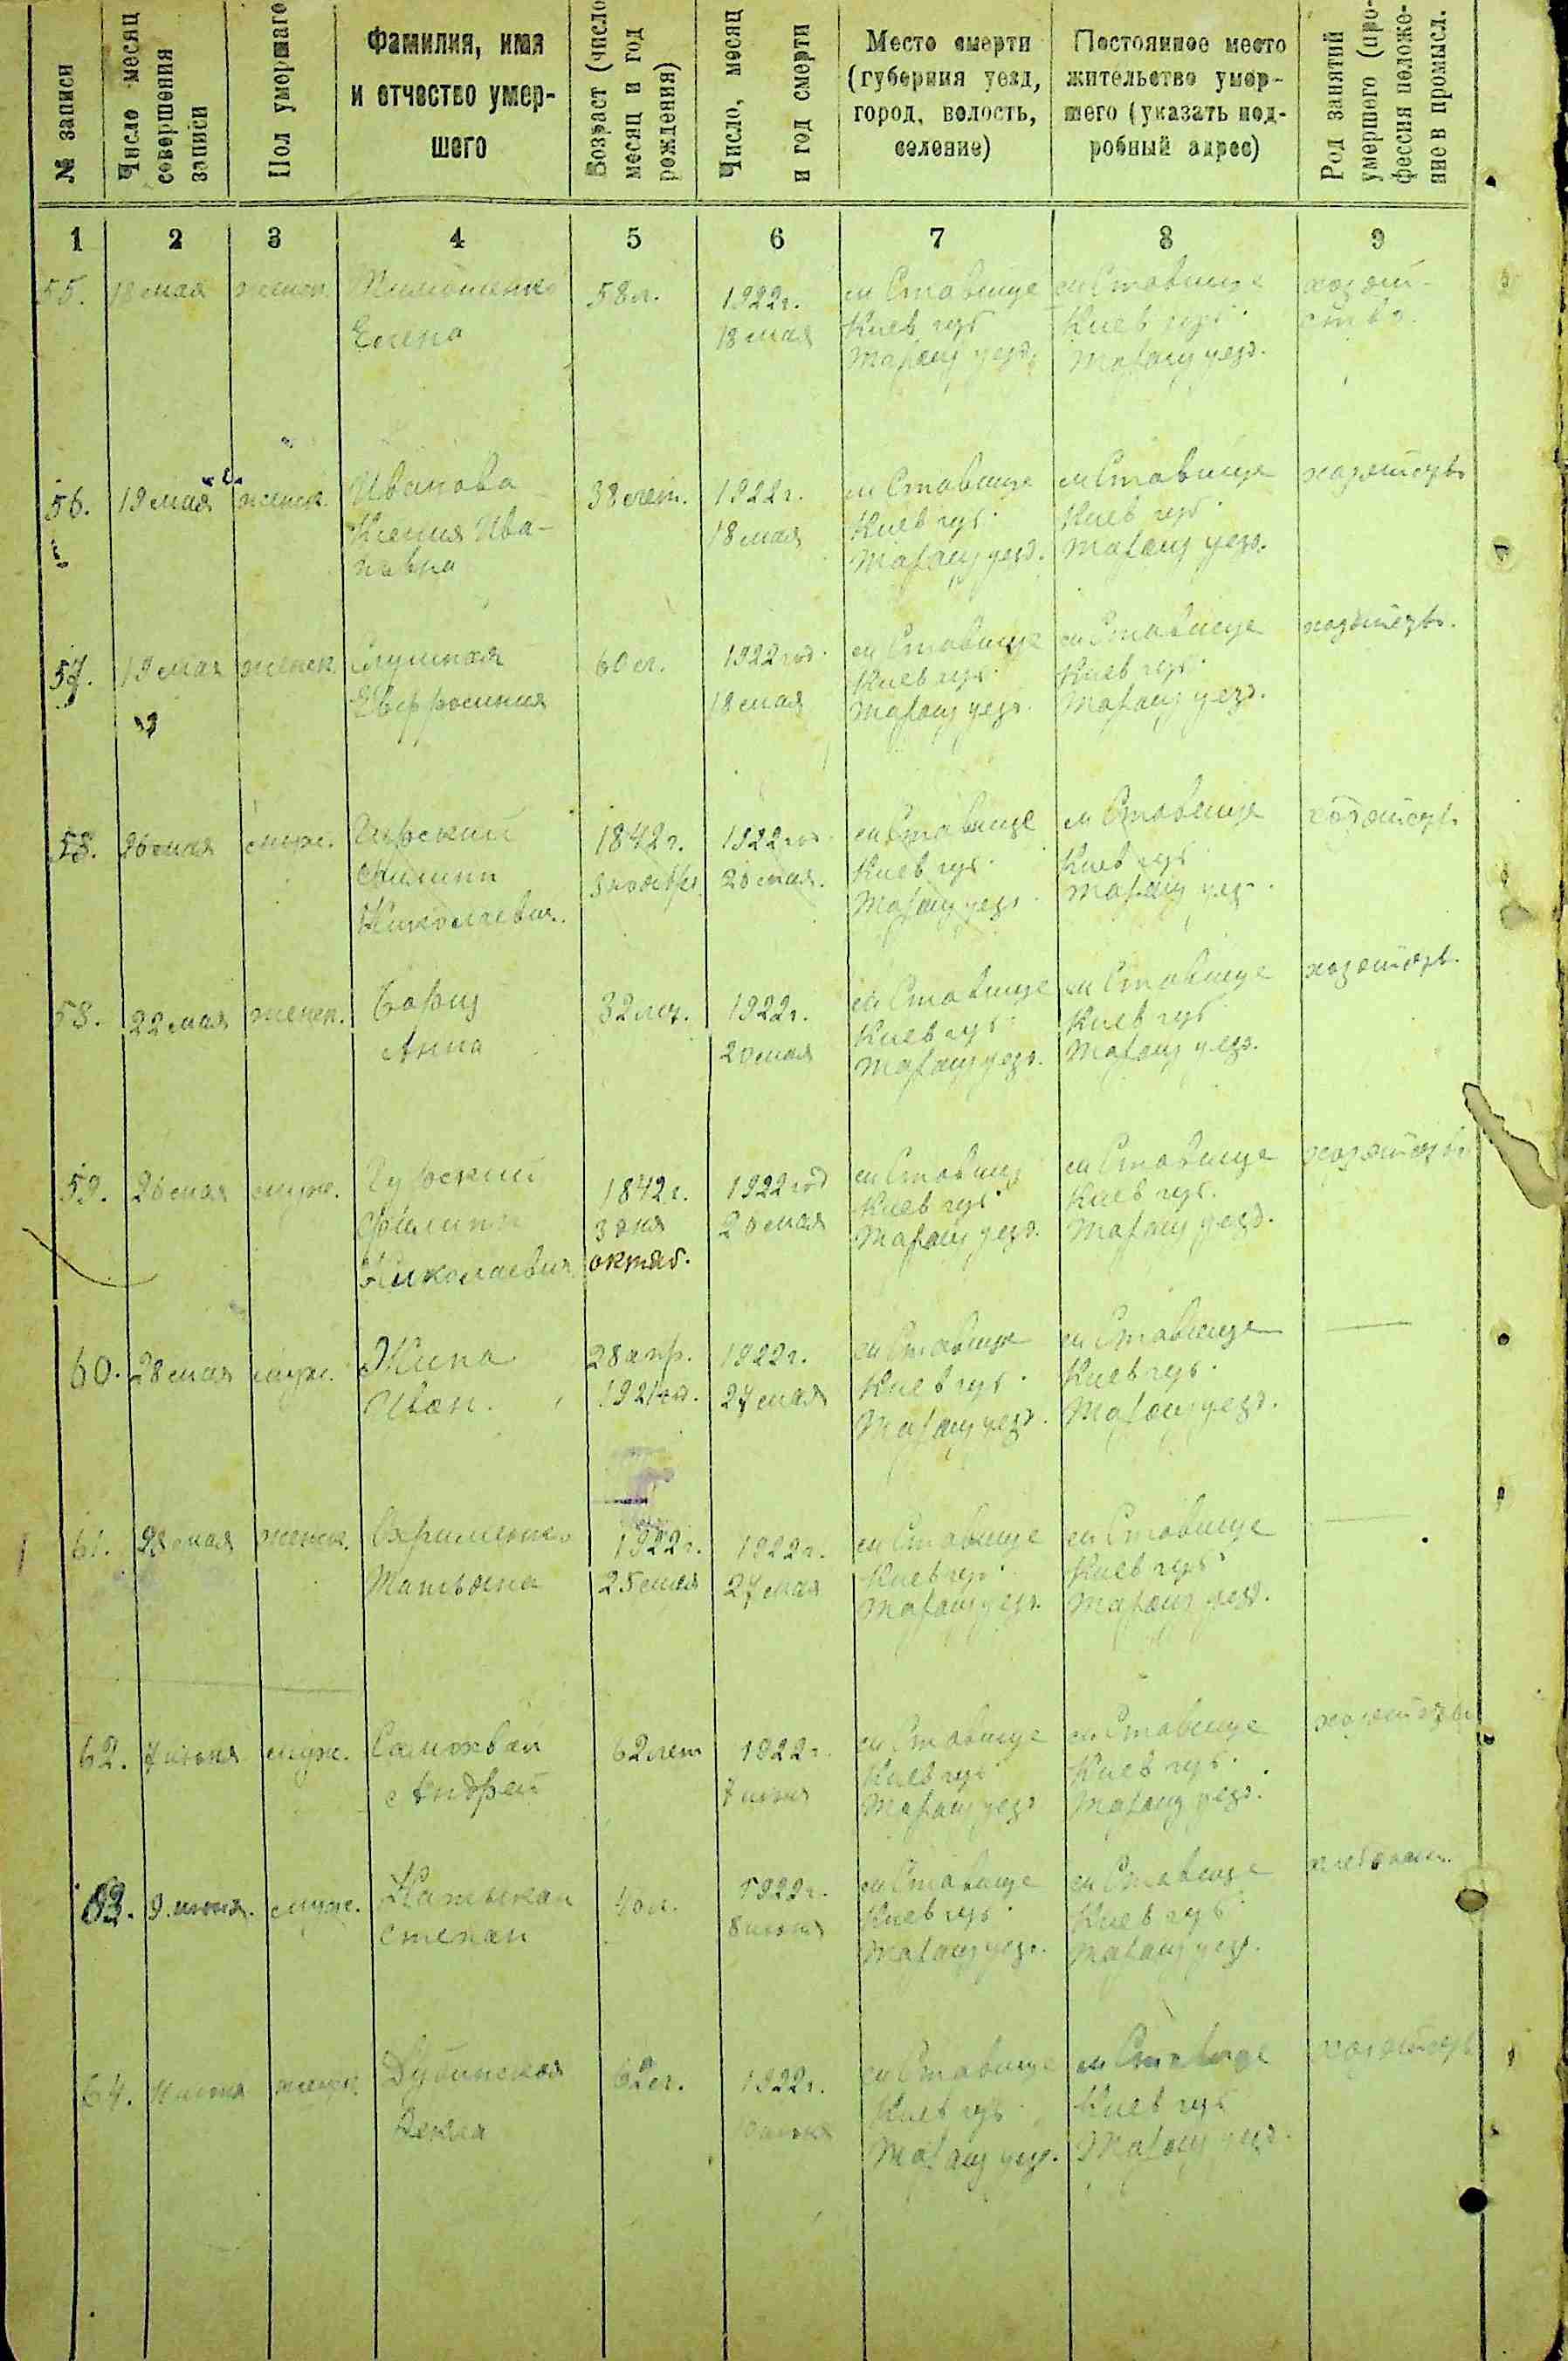 № записи
Число месяц совершения записи
Пол умершаго
Фамилия, имя и отчество умершего
Возраст (число месяц и год рождения)
Число, месяц и год смерти
Место смерти (губерния уезд, город, волость, селение)
Постоянное место жительство умершего (указать подробный адрес)
Род занятий умершего (профессия положение в промысл.
1 2 3 4 5 6 7 8 9
55. 18 мая женск. Елена 58 л. 1922 г. 18 мая м Ставище Киев губ Таращ уезд. м Ставище Киев губ. Таращ уезд. хозяйство.
56. 19 мая женск. Иванова Ксения Ивановна 38 лет. 1922 г. 18 мая м Ставище Киев губ. Таращ уезд. м Ставище Киев губ. Таращ уезд.
57. 19 мая женск. Евфросиния 60 л. 1922 год. 18 мая м Ставище Киев губ. Таращ уезд. м Ставище Киев губ. Таращ уезд.
58. 26 мая муж. Филипп Николаевич. 1842 г. 1922 год м Ставище Киев губ. Таращ уезд. м Ставище Киев губ. Таращ уезд.
58. 22 мая женск. Бориц Анна 32 лет. 1922 г. 20 мая м Ставище Киев губ. Таращ уезд. м Ставище Киев губ. Таращ уезд.
59. 26 мая муж. Гурский Филипп Николаевич 1842 г. 3 дня октяб. 1922 год м Ставище Киев губ. Таращ уезд. м Ставище Киев губ. Таращ уезд.
60. 28 мая муж. Жила Иван. 28 апр. 1921 год. 1922 г. 27 мая м Ставище Киев губ. Таращ уезд. м Ставище Киев губ. Таращ уезд.
61. 28 мая женск. Охрименко Татьяна 1922 г. 25 мая 1922 г. 27 мая м Ставище Киев губ. Таращ уезд. м Ставище Киев губ. Таращ уезд.
62. 7 июня муж. Андрей 62 лет 1922 г. 7 июня м Ставище Киев губ. Таращ уезд м Ставище Киев губ. Таращ уезд.
63. 9 июня. муж. Степан 40 л. 1922 г. 8 июня м Ставище Киев губ. Таращ уезд. м Ставище Киев губ. Таращ уезд.
64. женск. Дубинская Текла 62 л. 1922 г. м Ставище Киев губ Таращ уезд. м Ставище Киев губ Таращ уезд.